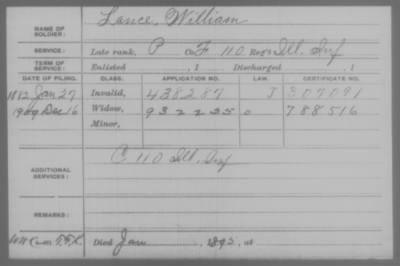 NAME OF SOLDIER: Lance, William
SERVICE: Late rank, P Co. F 110 Reg't Ill. Inf
TERM OF SERVICE: Enlisted , 1 Discharged , 1
DATE OF FILING. CLASS. APPLICATION NO. LAW. CERTIFICATE NO.
Jan 27 Invalid, 438287 J 307091
1909 Dec 16 Widow, 932235 788516
Minor,
ADDITIONAL SERVICES: C 110 Ill. Inf
REMARKS:
Died Jan